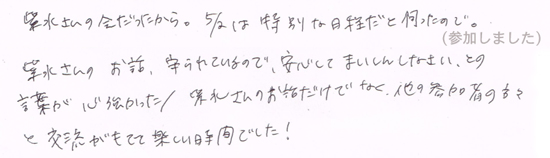 紫水さんの会だったから。5/2は特別な日程だと伺ったので。
(参加しました)
紫水さんのお話、守られているので、安心してまいしんしなさい、との
言葉が心強かった/紫水さんのお話だけでなく、他の参加者の方々
と交流がもてて楽しい時間でした!